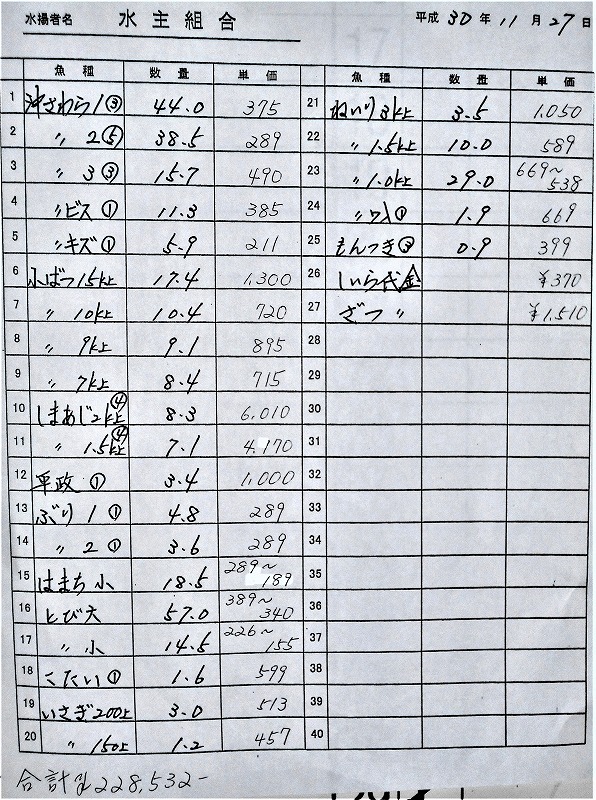 水揚者名 水主組合 平成 30 年 11 月 27 日
魚種 数量 単価 魚種 数量 単価
1 沖さわら1③ 44.0 375
2 〃 2⑤ 38.5 289
3 〃 3③ 15.7 490
4 〃ビス① 11.3 385
5 〃キズ① 5.9 211
6 小ばつ15k上 17.4 1,300
7 〃 10k上 10.4 720
8 〃 9k上 9.1 895
9 〃 7k上 8.4 715
10 しまあじ2k上④ 8.3 6,010
11 〃 1.5k上④ 7.1 4,170
12 平政 ① 3.4 1,000
13 ぶり 1 ① 4.8 289
14 〃 2 ① 3.6 289
15 はまち 小 18.5 289~189
16 とび大 57.0 389~340
17 〃 小 14.5 226~155
18 こだい ① 1.6 599
19 いさぎ200上 3.0 513
20 〃 150上 1.2 457
21 ねいり3k上 3.5 1,050
22 〃 1.5k上 10.0 589
23 〃 1.0k上 29.0 669~538
24 〃 ① 1.9 669
25 もんつき③ 0.9 399
26 しいら代金 ¥370
27 ざつ 〃 ¥1,510
28
29
30
31
32
33
34
35
36
37
38
39
40
合計 228,532-